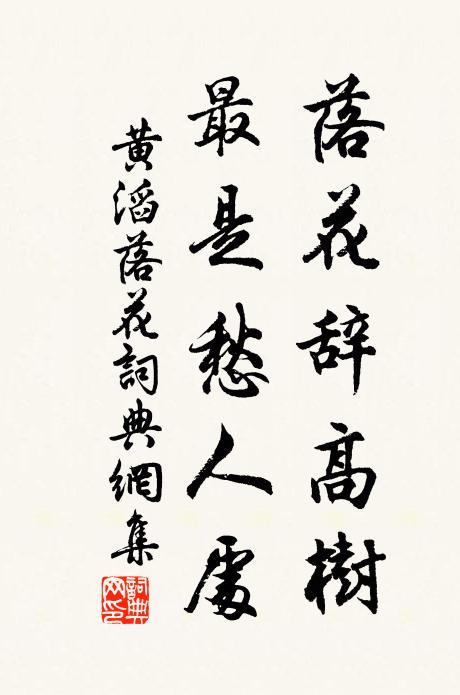 落花辞高樹
最是愁人處
黄滔落花詞典網集
詞典網印